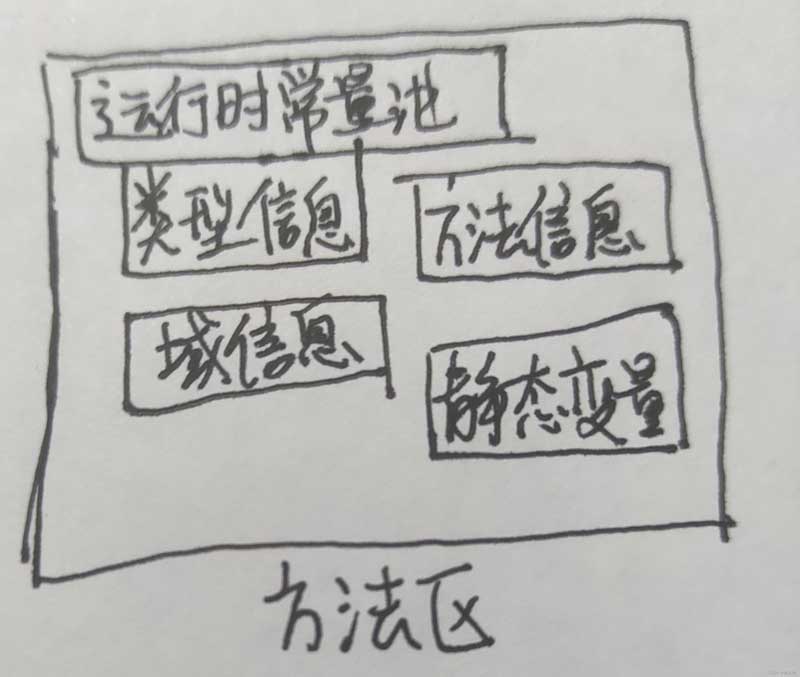 运行时常量池
类型信息 方法信息
域信息
静态变量
方法区